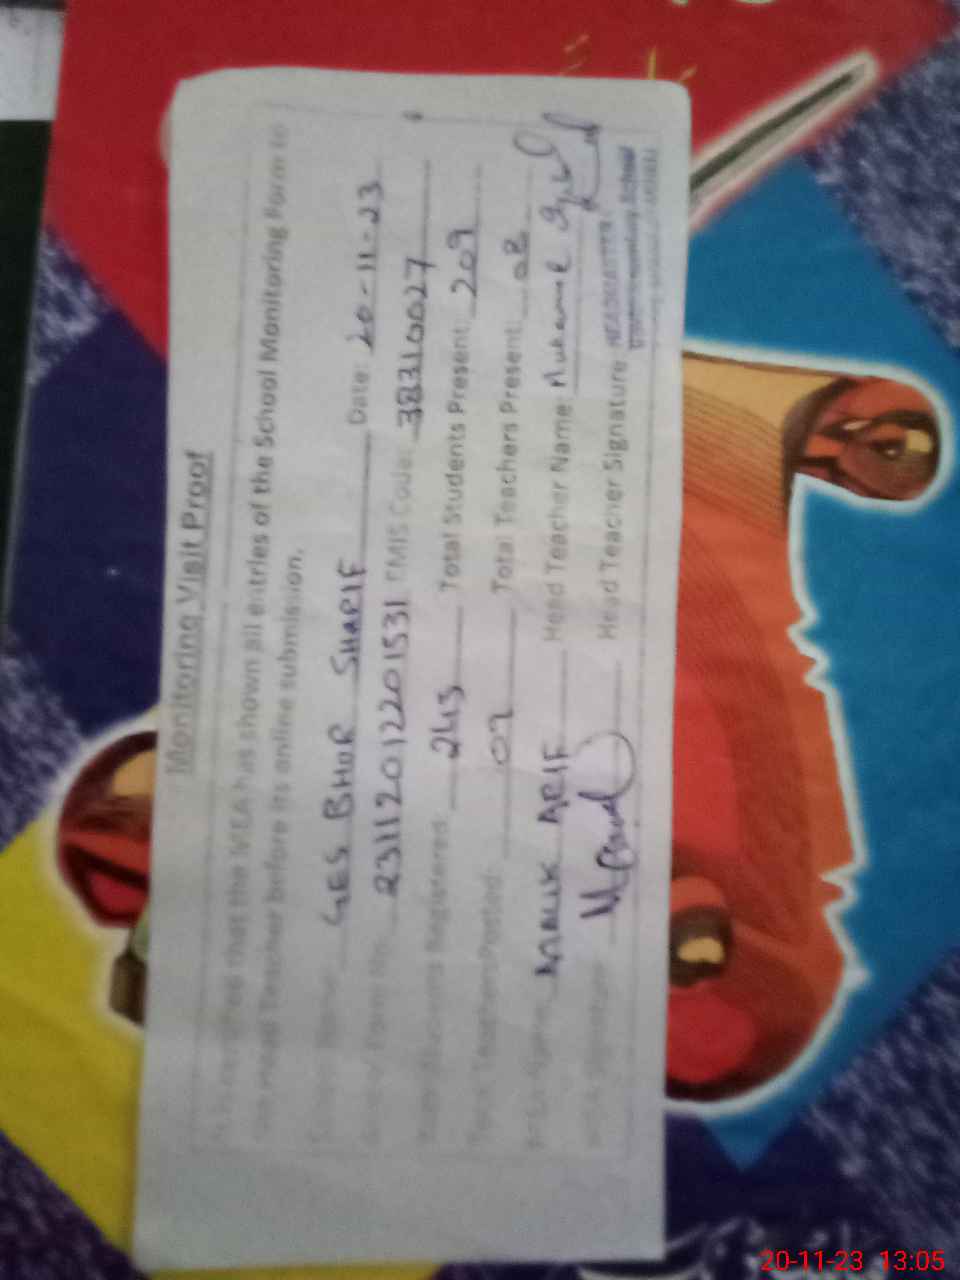 Monitoring Visit Proof
It is certified that the MEA has shown all entries of the School Monitoring Form to
Head Teacher before its online submission.
School Name: GES BHOR SHARIF Date: 20-11-23
Form No. 231112012201531 EMIS Code: 38310027
Students Registered: 243 Total Students Present: 209
Total Teachers Posted: 07 Total Teachers Present:
MEA Name: MALIK ARIF Head Teacher Name:
MEA Signature: Head Teacher Signature:
HEADMASTER
20-11-23 13:05